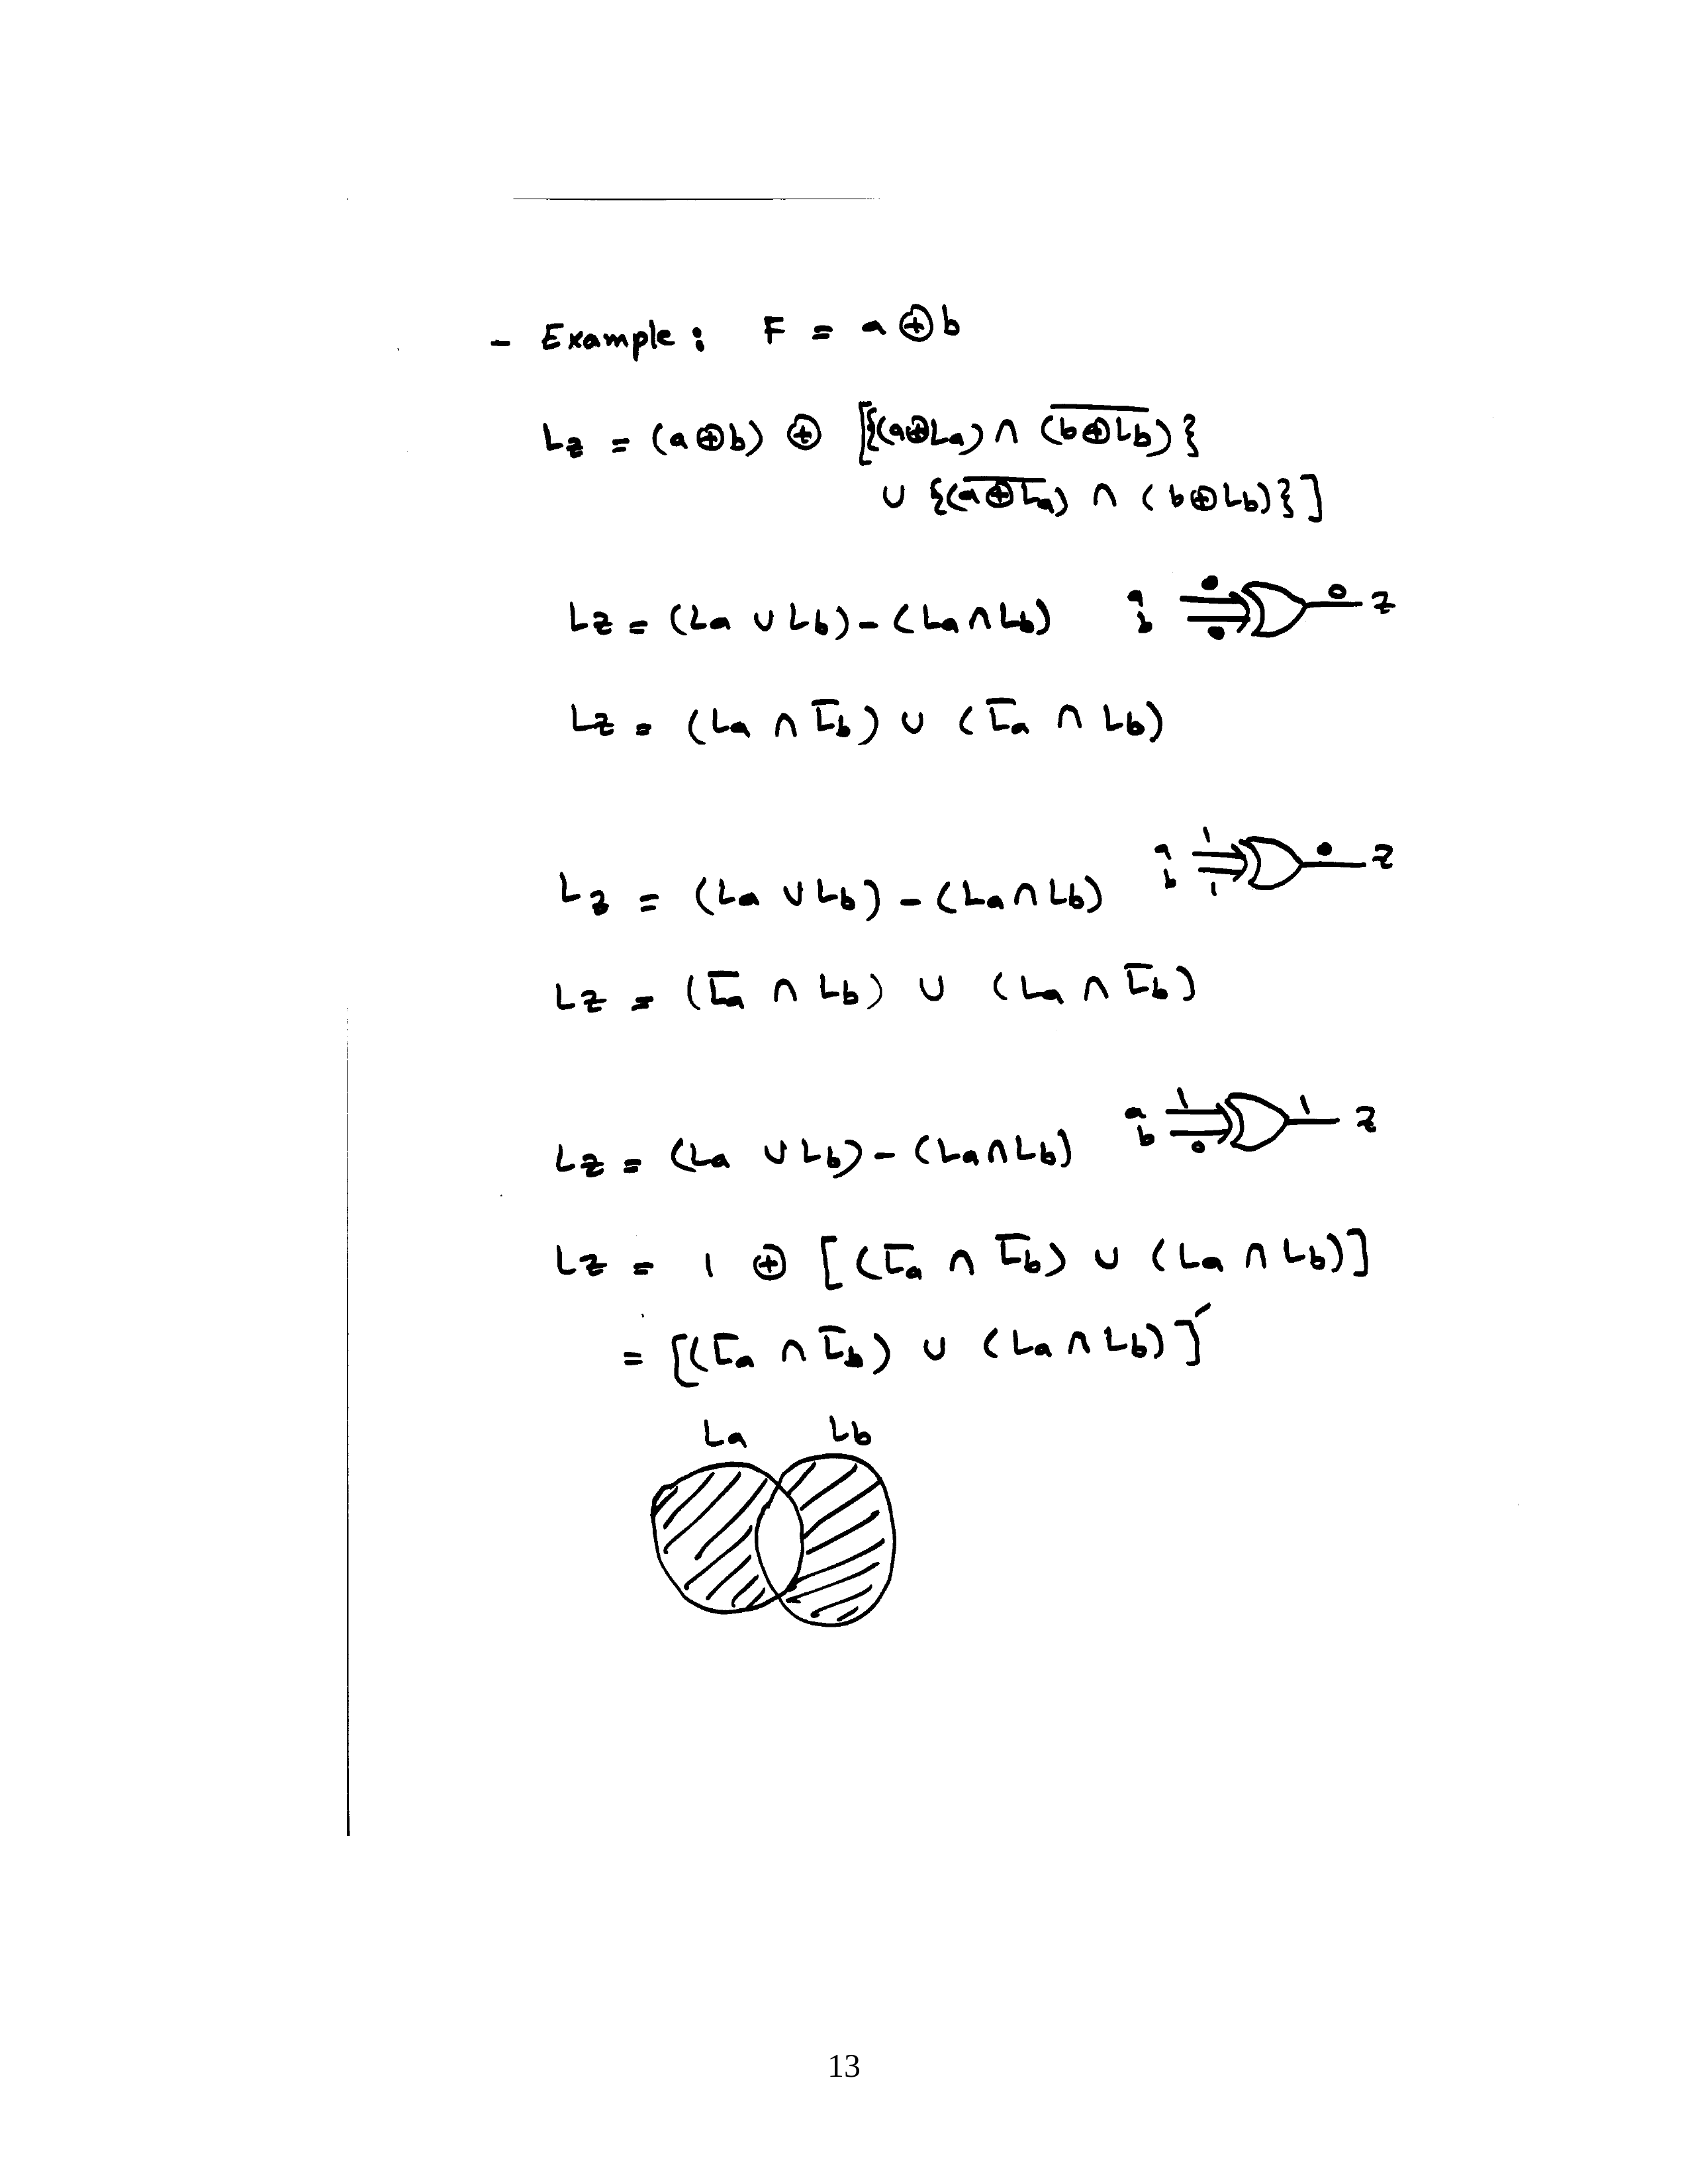 - Example: F = a ⊕ b
Lz = (a⊕b) ⊕ [{(a⊕La) ∩ (b⊕Lb)̅}
∪ {(a⊕La)̅ ∩ (b⊕Lb)}]
Lz = (La ∪ Lb) - (La ∩ Lb) a b 0 0 0 z
Lz = (La ∩ L̅b) ∪ (L̅a ∩ Lb)
Lz = (La ∪ Lb) - (La ∩ Lb) a b 1 1 0 z
Lz = (L̅a ∩ Lb) ∪ (La ∩ L̅b)
Lz = (La ∪ Lb) - (La ∩ Lb) a b 1 0 1 z
Lz = 1 ⊕ [(L̅a ∩ L̅b) ∪ (La ∩ Lb)]
= [(L̅a ∩ L̅b) ∪ (La ∩ Lb)]′
La Lb
13